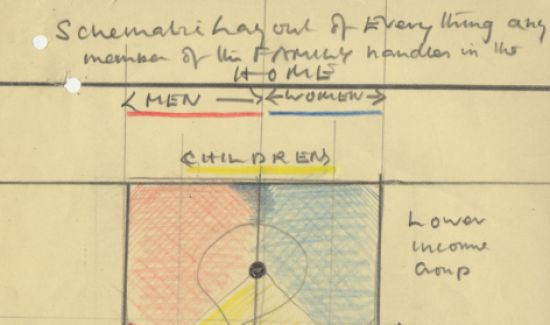 Schematic Layout of Everything any
member of the FAMILY handles in the
HOME
MEN WOMEN
CHILDRENS
Lower
income
Group